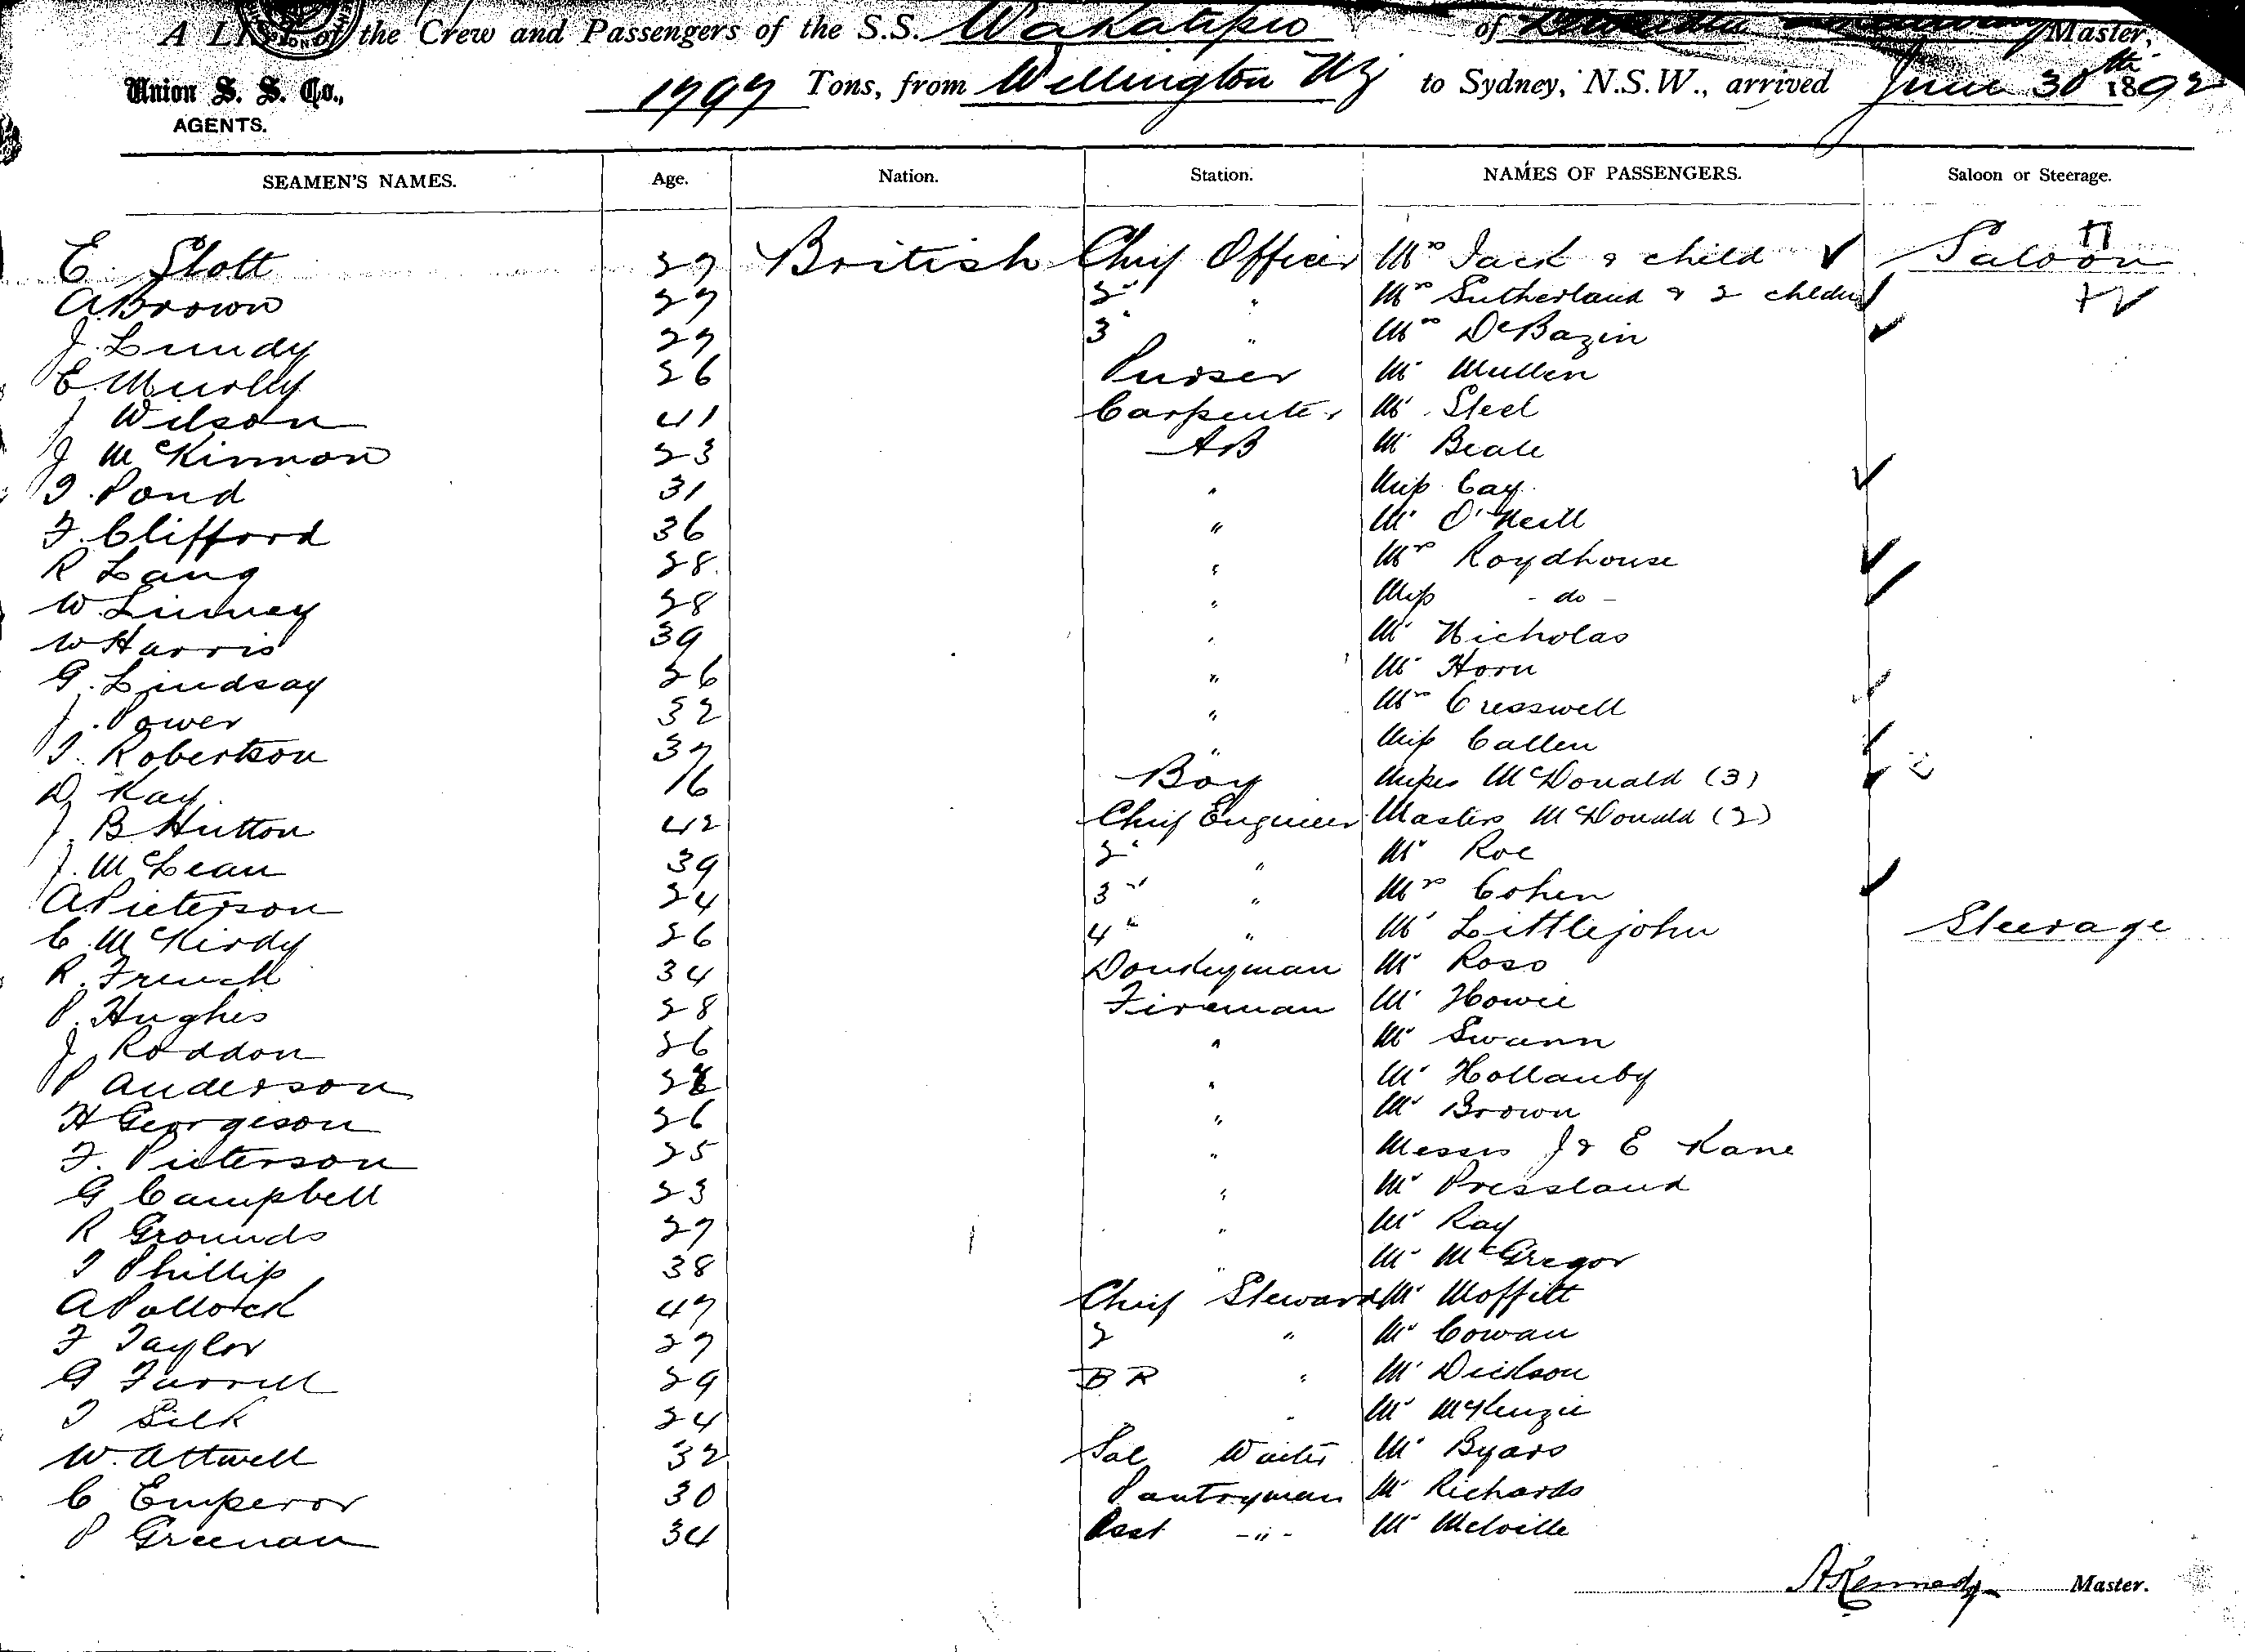 A LIST of the Crew and Passengers of the S.S. Wakatipu of Master,
Union S. S. Co., 1797 Tons, from Wellington NZ to Sydney, N.S.W., arrived June 30th 1892
AGENTS.
SEAMEN'S NAMES. Age. Nation. Station. NAMES OF PASSENGERS. Saloon or Steerage.
E. Stott 37 British Chief Officer Mrs Jack & child Saloon
A Brown 27 2" " Mrs Sutherland & 2 children
J. Lundy 27 3" " Mrs De Bazin
E Murly 26 Purser Mr Mullen
J Wilson 41 Carpenter Mr Steel
J McKinnon 23 AB Mr Beale
T. Pond 31 " Miss Cay
F. Clifford 36 " Mr O'Neill
R Lang 28 " Mrs Roydhouse
W. Linney 28 " Miss - do -
W Harris 39 " Mr Nicholas
G. Lindsay 26 " Mr Horn
J. Power 32 " Mrs Cresswell
T. Robertson 37 " Miss Callen
D. Kay 16 Boy Misses McDonald (3)
J. B Hutton 42 Chief Engineer Masters McDonald (2)
J. McLean 39 2" " Mr Roe
A Pieterson 24 3rd " Mrs Cohen
C. McKirdy 26 4th " Mr Littlejohn Steerage
R. French 34 Donkeyman Mr Ross
P. Hughes 28 Fireman Mr Howie
J Roddon 26 " Mr Swann
P Anderson " Mr Hollanby
H Georgeson 26 " Mr Brown
F. Pieterson 25 " Messrs J & E Kane
G Campbell 23 " Mr Pressland
R Grounds 27 " Mr Ray
T Phillip 38 " Mr McGregor
A Pollock 47 Chief Steward Mr Moffitt
F Taylor 27 2 " Mr Cowan
G Farrell 29 B R " Mr Dickson
T Silk 24 " Mr McKenzie
W. Attwell 32 Sal Waiter Mr Byars
C Emperor 30 Pantryman Mr Richards
P Greenan 34 Asst - " - Mr Melville
A Kennedy Master.